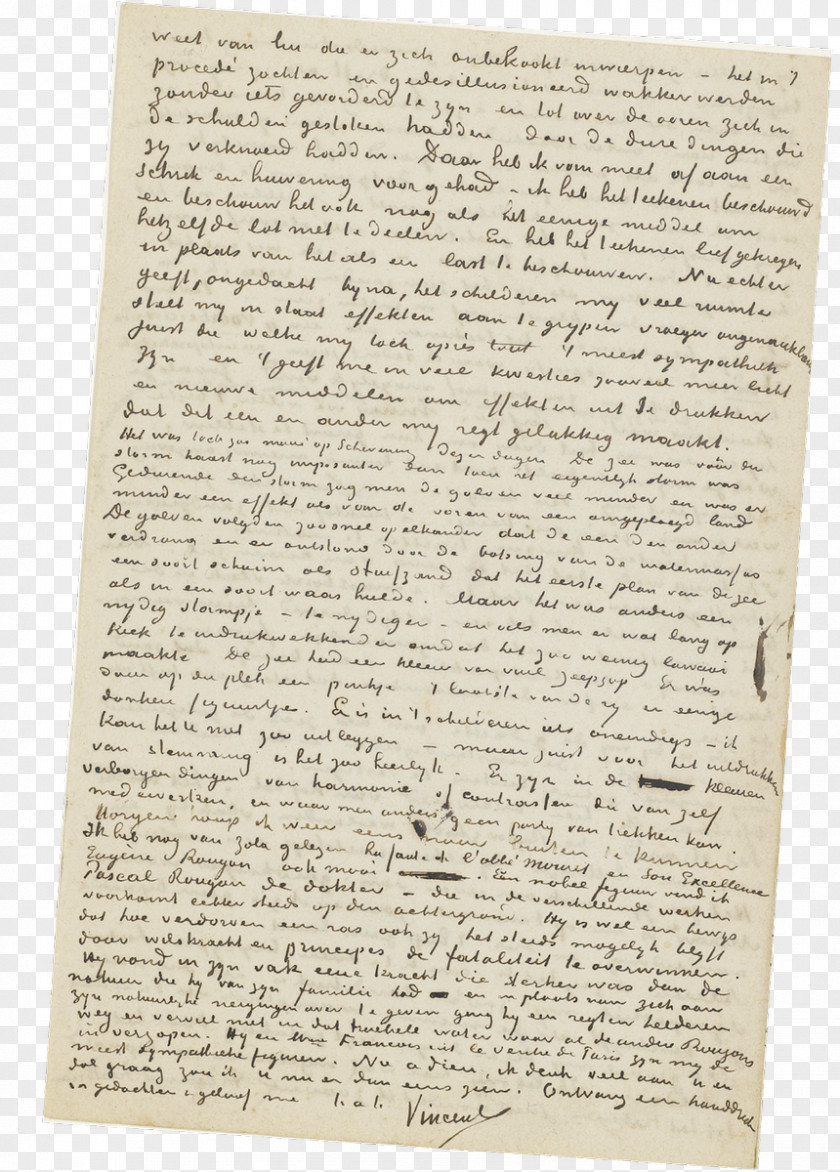 weet van hu die er zich onbekookt inwierpen – het in 't
procedé zochten en gedesillusioneerd wakker werden
zonder iets gevorderd te zyn en tot over de ooren zich in
de schulden gestoken hadden door de dure dingen die
zy verknoeid hadden. Daar heb ik van meet af aan een
schrik en huivering voor gehad – ik heb het teekenen beschouwd
en beschouw het ook nog als het eenige middel om
hetzelfde lot niet te deelen. En heb het teekenen lief gekregen
in plaats van het als een last te beschouwen. Nu echter
geeft, ongedacht byna, het schilderen my veel ruimte
stelt my in staat effekten aan te grypen vroeger ongenaakbaar
juist die welke my toch après tout 't meest sympathiek
zyn en 't geeft me in veel kwesties zooveel meer licht
en nieuwe middelen om effekten uit te drukken
dat dit een en ander my regt gelukkig maakt.
Het was toch zoo mooi op Schevening dezer dagen. De zee was vóór den
storm haast nog imposanter dan toen het eigentlyk storm was
Gedurende den storm zag men de golven veel minder en was er
minder een effekt als van de voren van een omgeploegd land
De golven volgden zoo snel op elkander dat de een den ander
verdrong en er ontstond door de botsing van de watermassas
een soort schuim als stuifzand dat het eerste plan van de zee
als in een soort waas hulde. Maar het was anders een
nydig stormpje – te nydiger – en als men er wat lang op
keek te indrukwekkender omdat het zoo weinig lawaai
maakte De zee had een kleur van vuil zeepsop Er was
daar op die plek een pinkje 't laatste van de ry en eenige
donkere figuurtjes. Er is in 't schilderen iets oneindigs – ik
kan het U niet zoo uitleggen – maar juist voor het uitdrukken
van stemming is het zoo heerlyk. Er zyn in de kleuren
verborgen dingen van harmonie of contrasten die van zelf
medewerken, en waar men anders geen party van trekken kan.
Morgen hoop ik weer eens naar buiten te kunnen
Ik heb nog van Zola gelezen La faute de l'abbé Mouret en Son Excellence
Eugène Rougon ook mooi. Een nobel figuur vind ik
Pascal Rougon de dokter – die in de verschillende werken
voorkomt echter steeds op den achtergrond. Hy is wel een bewys
dat hoe verdorven een ras ook zy het steeds mogelyk blyft
door wilskracht en principes de fataliteit te overwinnen.
Hy vond in zyn vak eene kracht die sterker was dan de
natuur die hy van zyn familie had – en in plaats van zich aan
zyn natuurlyke neigingen over te geven ging hy een regten helderen
weg en verviel niet in dat troebele water waar al de andere Rougons
in verzopen. Hy en Mme Francois uit le ventre de Paris zyn my de
meest sympathieke figuren. Nu adieu, ik denk veel aan U en
dol graag zou ik U nu en dan eens zien. Ontvang een handdruk
in gedachten & geloof me t.à.t. Vincent